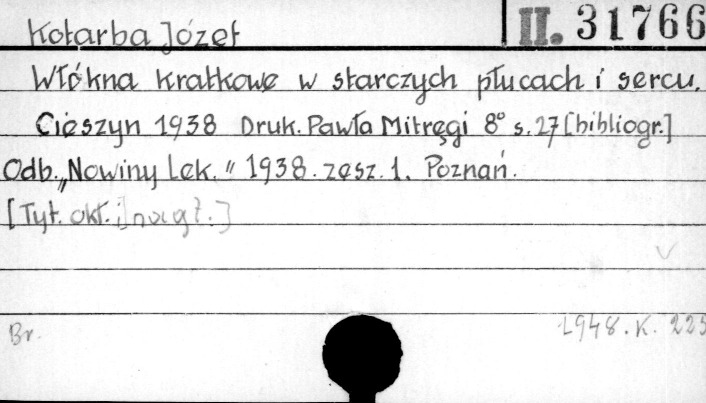 Kotarba Józef II. 31766
Włókna kratkowe w starczych płucach i sercu.
Cieszyn 1938 Druk. Pawła Mitręgi 8° s. 27 [bibliogr.]
Odb. „Nowiny Lek." 1938. zesz. 1. Poznań.
[Tyt. okł. i nagł.]
Br. 1948. K. 223